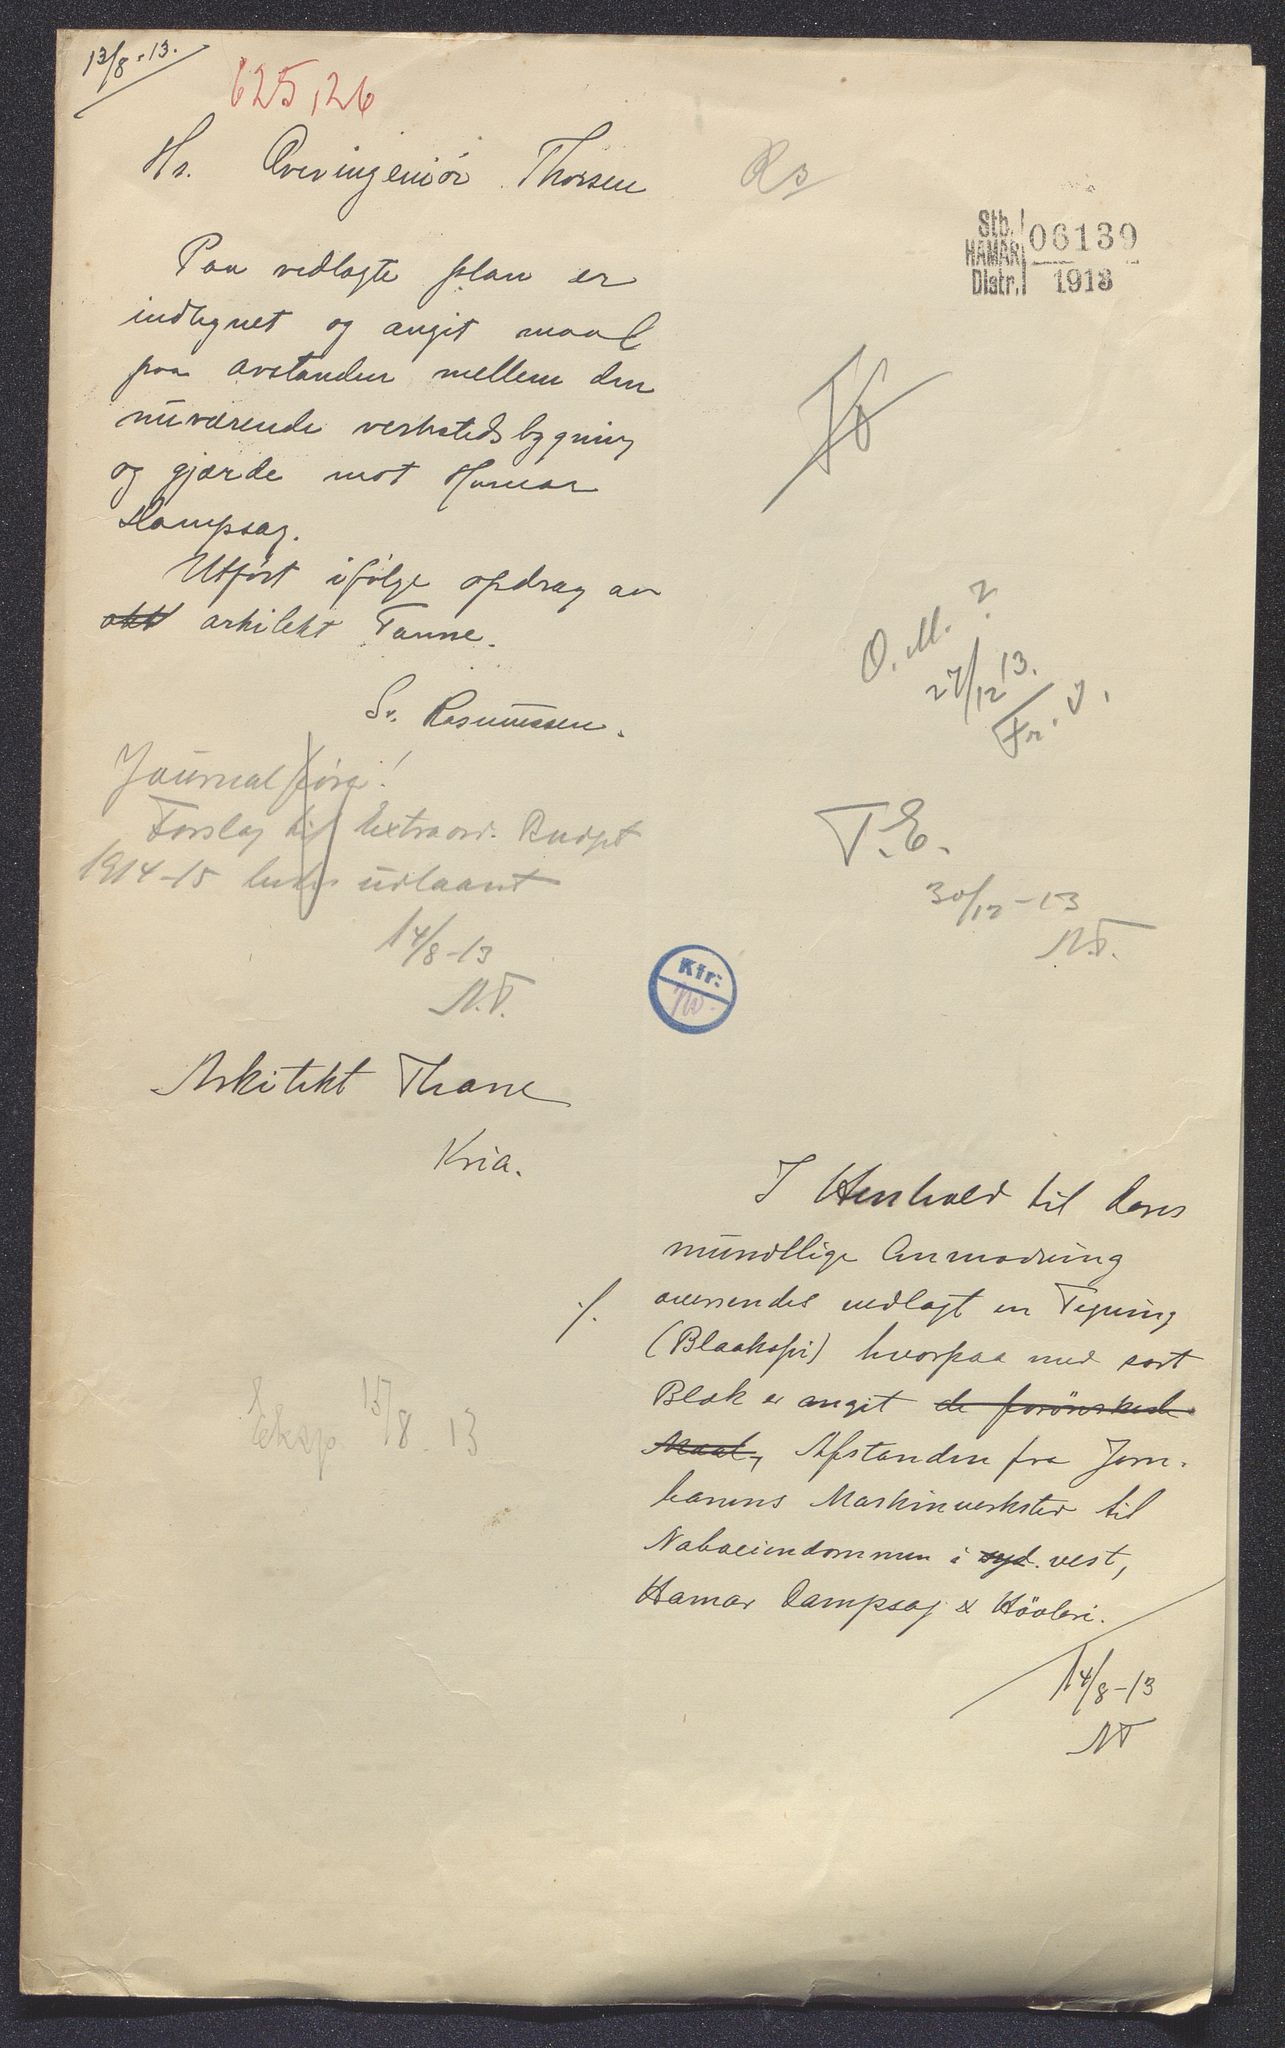 13/8-13.
625,26
Hr. Overingeniör Thorsen
Rs
Stb. HAMAR Distr. 06139 1913
Paa vedlagte plan er
indtegnet og angit maal
paa avstanden mellem den
nuværende verkstedsbygning
og gjærde mot Hamar
Dampsag.
Utført ifølge opdrag av
arkitekt Tanne.
Sv. Rasmussen.
O. M. ?
27/12 13.
Fr. J.
Journalføres!
Forslag til Extraord. Budget
1914-15 udlaant
14/8-13
N.T.
T.E.
30/12-13
N.T.
Kfr:
Arkitekt Thane
Kria.
I Henhold til Deres
mundtlige Anmodning
oversendes vedlagt en Tegning
(Blaakopi) hvorpaa med sort
Blæk er angit de forönskede
Maal, Afstanden fra Jern-
banens Maskinverksted til
Nabaeiendommen i syd. vest,
Hamar Dampsag & Hövleri.
14/8-13
NT
Eksp. 15/8 13